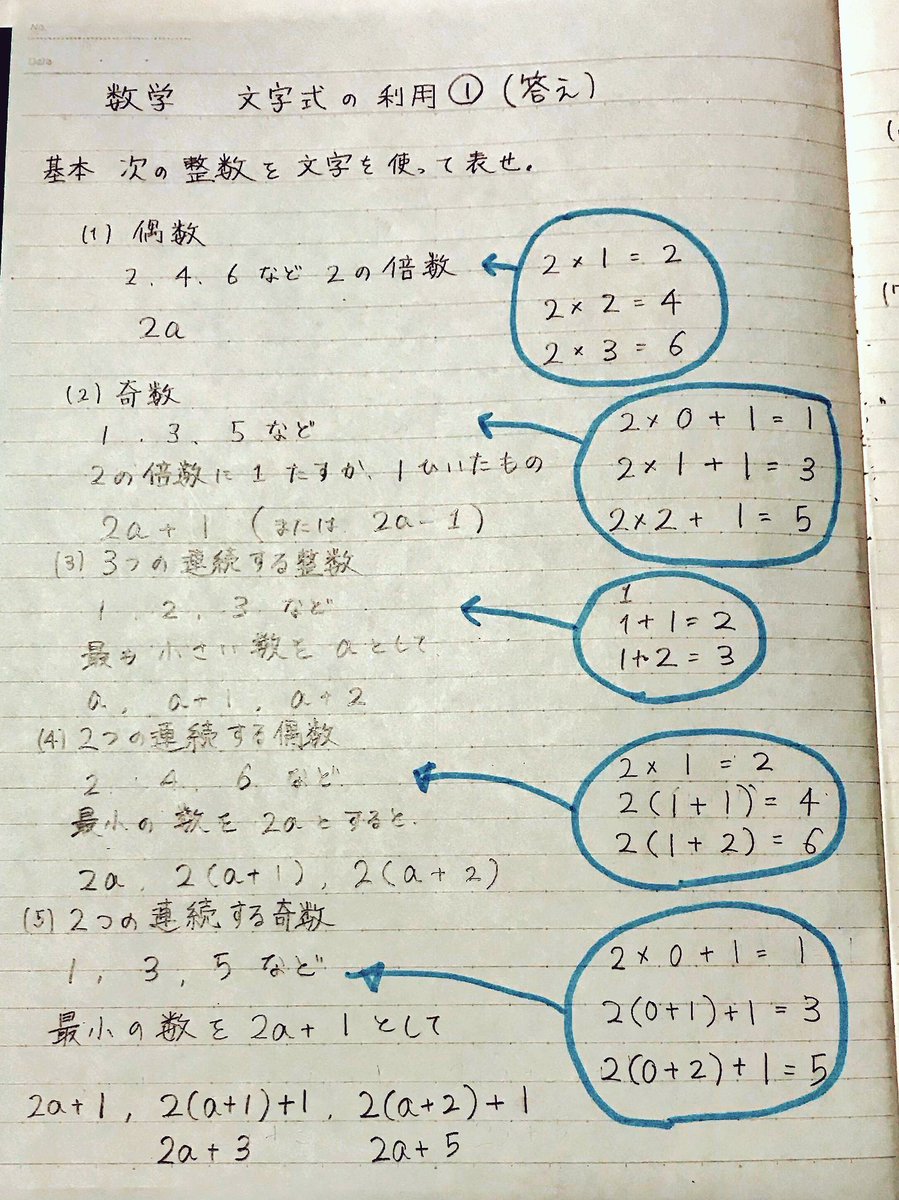 No.
Date
数学 文字式の利用①(答え)
基本 次の整数を文字を使って表せ。
(1) 偶数
2、4、6 など 2の倍数
2a
2×1=2
2×2=4
2×3=6
(2) 奇数
1、3、5 など
2の倍数に1たすか、1ひいたもの
2a+1 (または 2a-1)
2×0+1=1
2×1+1=3
2×2+1=5
(3) 3つの連続する整数
1、2、3 など
最も小さい数をaとして
a, a+1, a+2
1
1+1=2
1+2=3
(4) 2つの連続する偶数
2、4、6 など
最小の数を2aとすると、
2a, 2(a+1), 2(a+2)
2×1=2
2(1+1)=4
2(1+2)=6
(5) 2つの連続する奇数
1, 3, 5 など
最小の数を2a+1として
2a+1, 2(a+1)+1, 2(a+2)+1
2a+3 2a+5
2×0+1=1
2(0+1)+1=3
2(0+2)+1=5